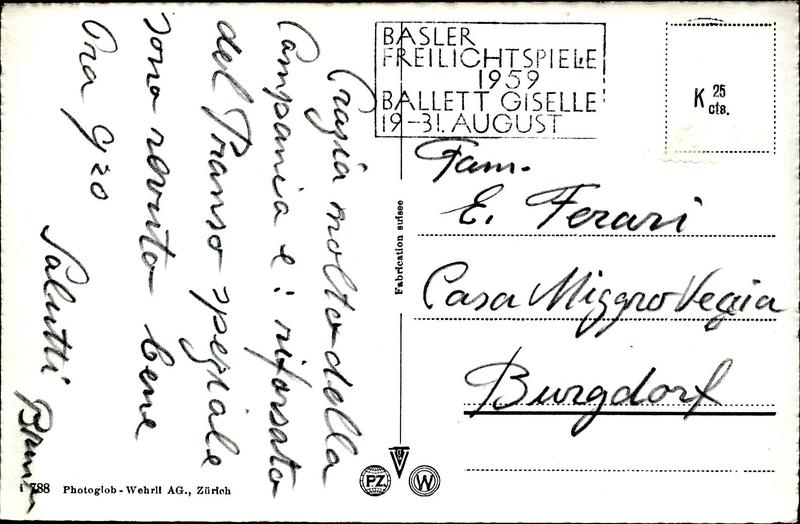 BASLER
FREILICHTSPIELE
1959
BALLETT GISELLE
19-31. AUGUST
K 25
cts.
Fam.
E. Ferari
Casa Miggro Vegia
Burgdorf
Grazia molto della
Compania e i riforsato
del Pranso speziale
sono revusto bene
Ora 9,20
Salutti
Fabrication suisse
788 Photoglob-Wehrli AG., Zürich
PZ.
W